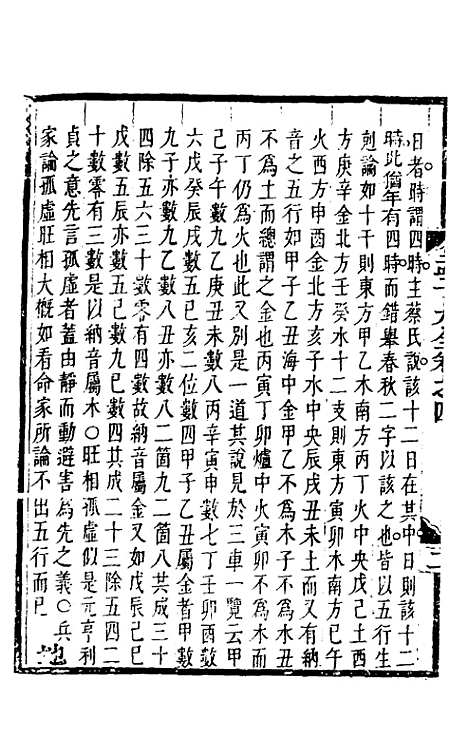 日者時謂四時主蔡氏說該十二日在其中日則該十二
時此偹年有四時而錯舉春秋二字以該之也皆以五行生
剋論如十干則東方甲乙木南方丙丁火中央戊己土西
方庚辛金北方壬癸水十二支則東方寅卯木南方巳午
火西方申酉金北方亥子水中央辰戌丑未土而又有納
音之五行如甲子乙丑海中金甲乙不為木子丑
不為土而總謂之金也丙寅丁卯爐中火寅卯不為木而
丙丁仍為火也此又別是一道其說見於三車一覽云甲
己子午數九乙庚丑未數八丙辛寅申數七丁壬卯酉數
六戊癸辰戌數五巳亥二位數四甲子乙丑屬金者甲數
九子亦數九乙數八丑亦數八二箇九二箇八共成三十
四除五六三十數零有四數故納音屬金又如戊辰己巳
戊數五辰亦數五己數九巳數四共成二十三除五四二
十數零有三數是以納音屬木〇旺相孤虛似是元亨利
貞之意先言孤虛者蓋由靜而動避害為先之義〇兵
家論孤虛旺相大概如看命家所論不出五行而已
地
卷之四
二